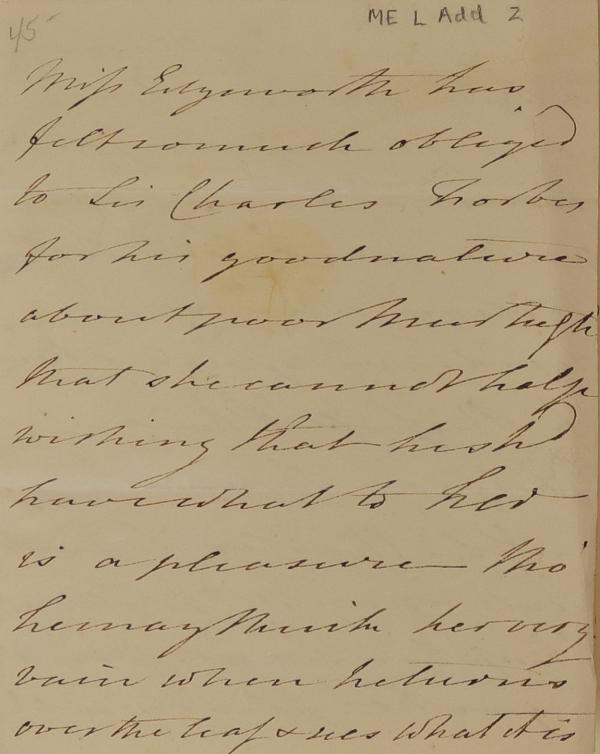 45
ME L Add 2
Miss Edgeworth has
felt so much obliged
to Sir Charles Forbes
for his good nature
about poor Murtagh
that she cannot help
wishing that he shd
have what to her
is a pleasure tho'
he may think her very
vain when he turns
over the leaf & sees what it is